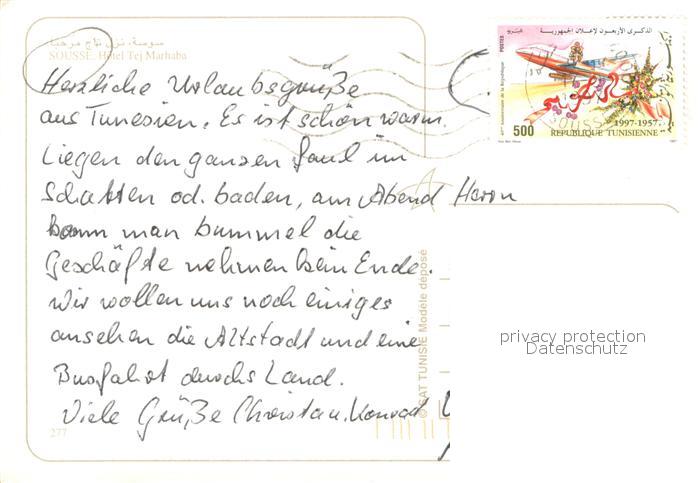 سوسة، نزل تاج مرحبا
SOUSSE: Hôtel Tej Marhaba
Herzliche Urlaubsgrüße
aus Tunesien. Es ist schön warm.
Liegen den ganzen faul im
Schatten od. baden, am Abend Herrn
kann man bummel die
Geschäfte nehmen kein Ende.
Wir wollen uns noch einiges
ansehen die Altstadt und eine
Busfahrt durchs Land.
Viele Grüße Christa u. Konrad
277
© SAT TUNISIE Modèle déposé
الذكرى الأربعون لإعلان الجمهورية
POSTES
40ème Anniversaire de la République
500
1997-1957
REPUBLIQUE TUNISIENNE
SOUSSE
1997
privacy protection
Datenschutz